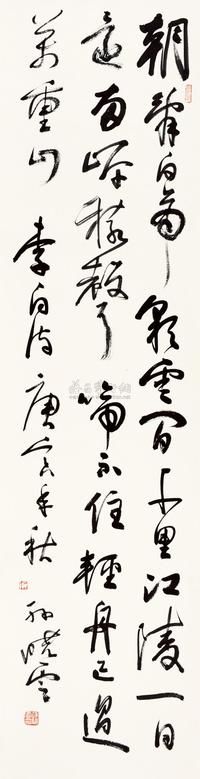 朝辭白帝彩雲間千里江陵一日
還兩岸猿聲啼不住輕舟已過
萬重山 李白詩 庚寅年秋 孫曉雲